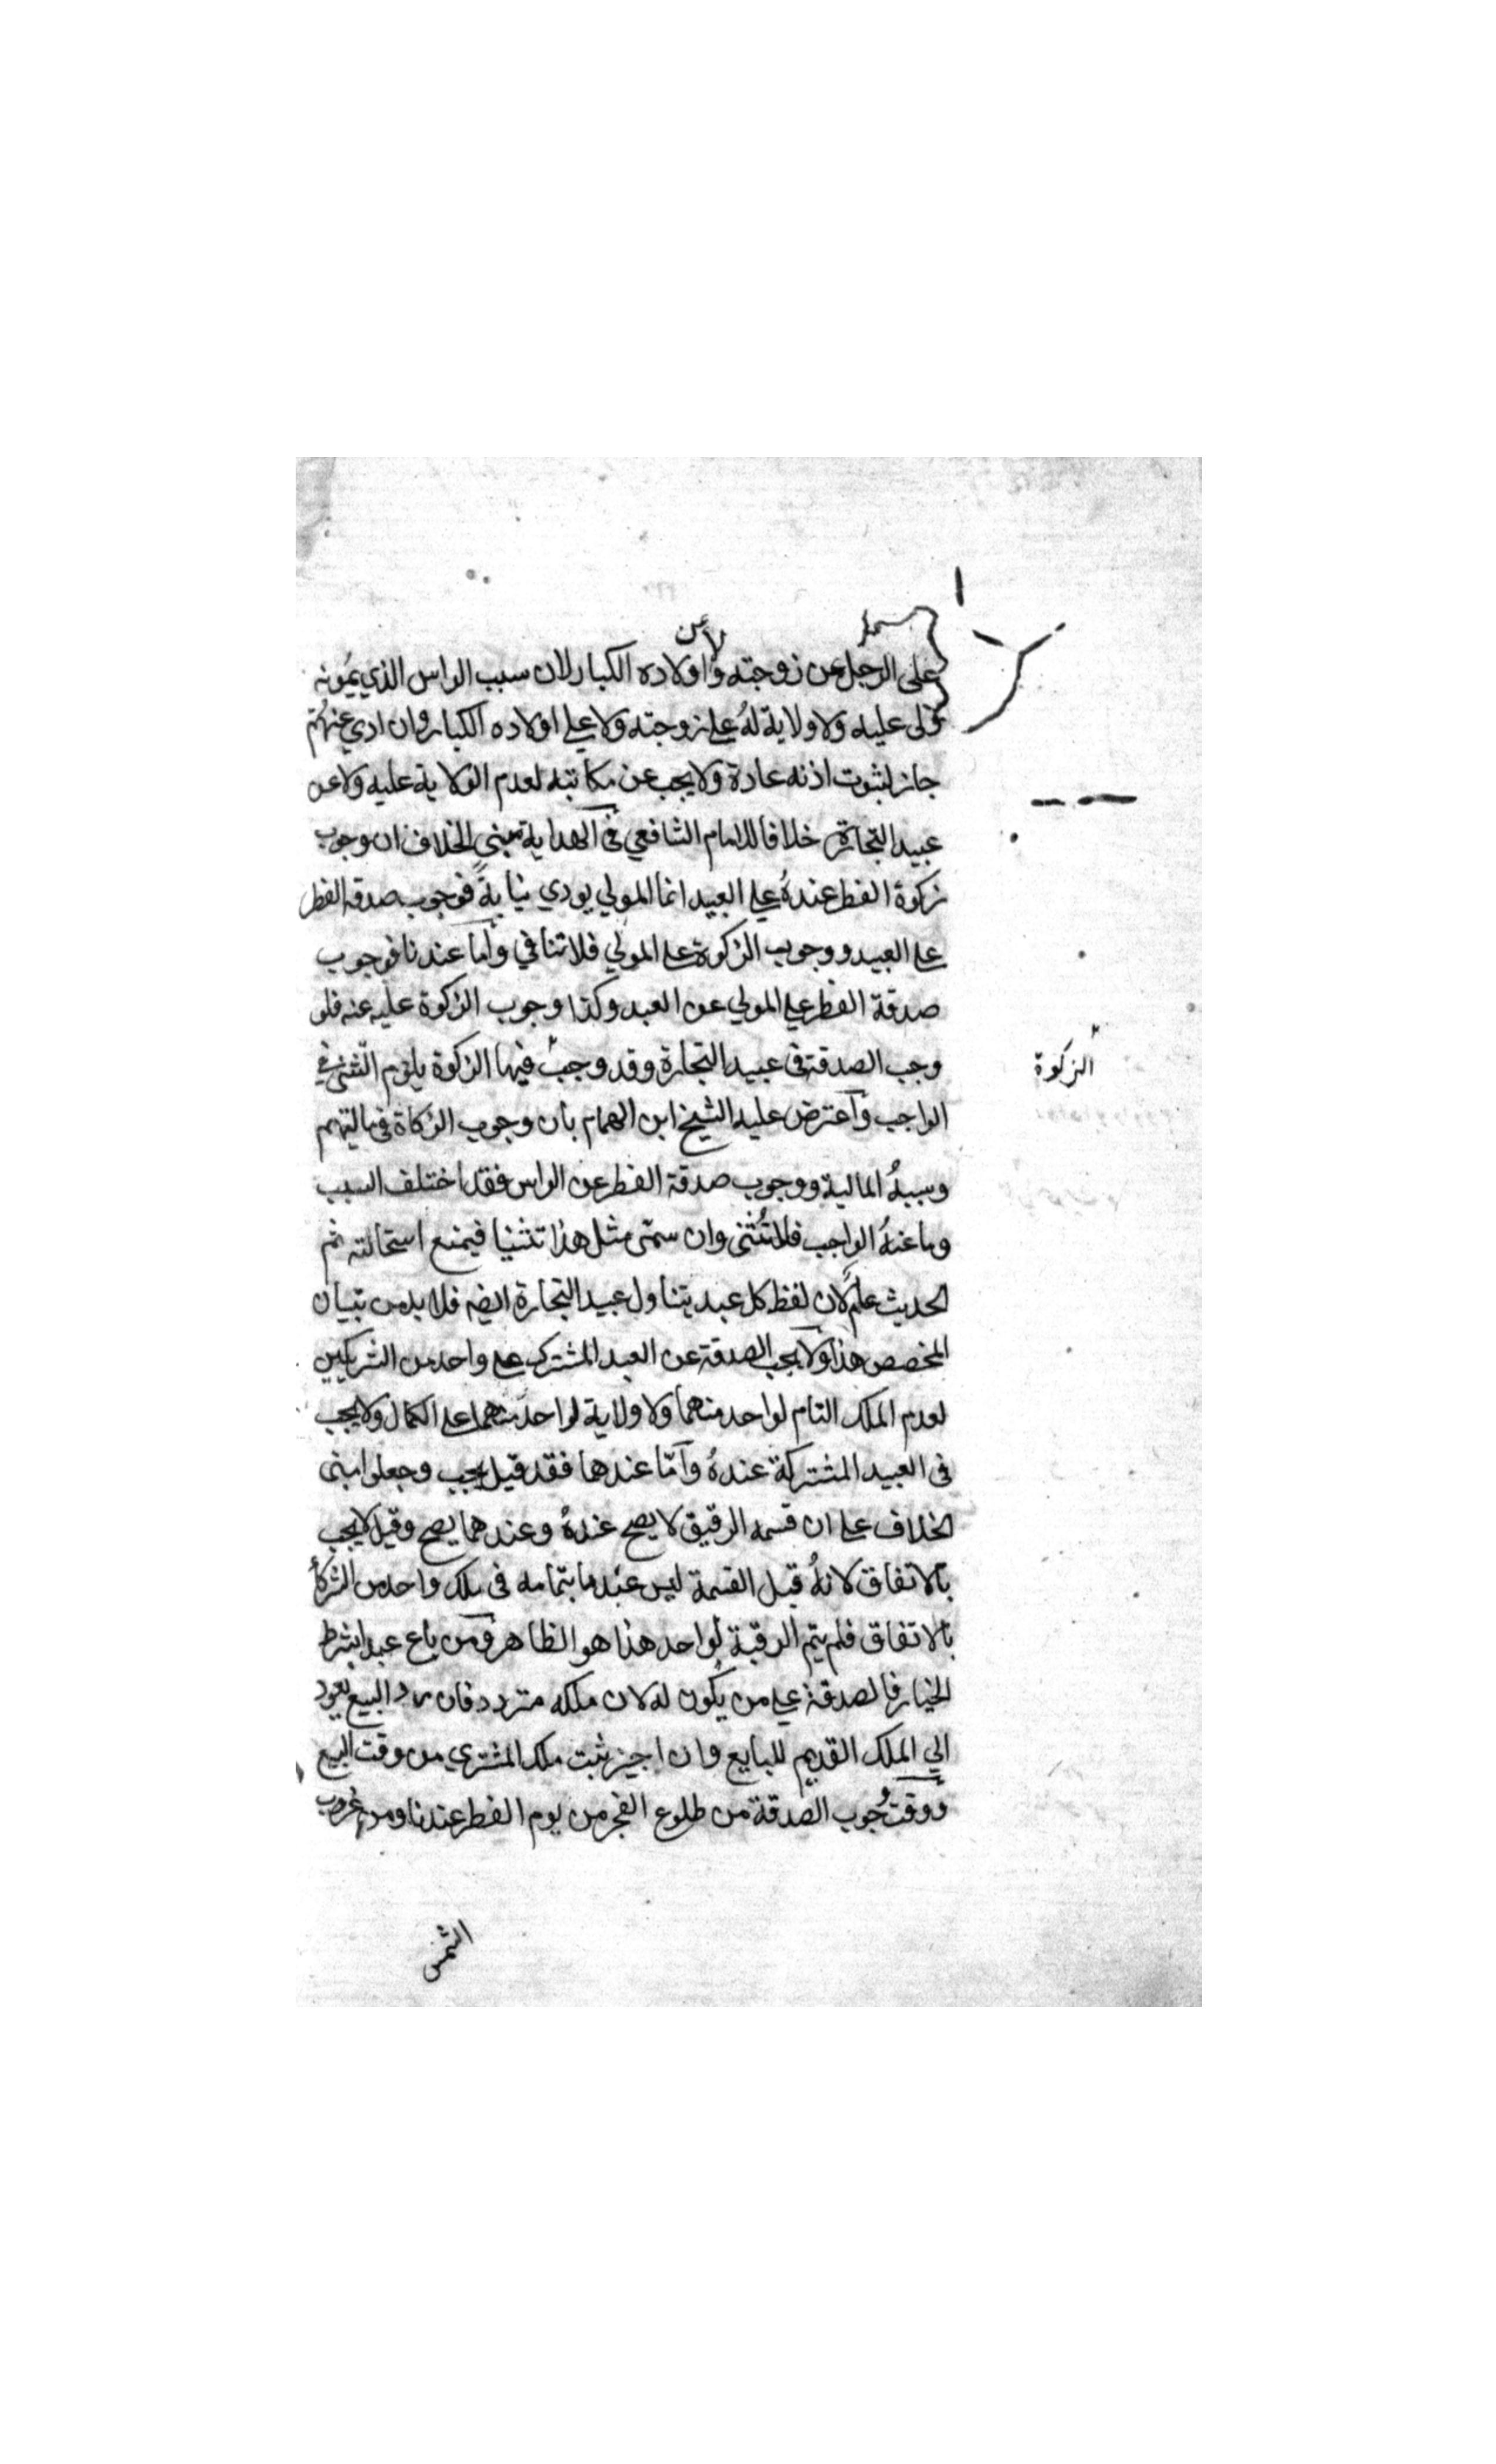 على الرجل عن زوجته ولا عن اولاده الكبار لان سبب الراس الذي يمونه
ولى عليه ولا ولاية لهُ على زوجته ولا على اولاده الكبار وان ادي عنهم
جاز لثبوت اذنه عادة ولا يجب عن مكاتبه لعدم الولاية عليه ولا عن
عبيد التجارة خلافا للامام الشافعي في الهداية مبنى الخلاف ان وجوب
زكوة الفطر عندهُ على العبيد انما المولي يودي نيابةً فوجوب صدقة الفطر
على العبيد ووجوب الزكوة على المولي فلا تنافي وأما عندنا فوجوب
صدقة الفطر على المولي عن العبد وكذا وجوب الزكوة عليه عنه فلو
وجب الصدقة فى عبيد التجارة وقد وجب فيها الزكوة يلزم الثنى في
الزكوة
الواجب وأعترض عليه الشيخ ابن الهمام بان وجوب الزكاة فى ماليتهم
وسببهُ المالية ووجوب صدقة الفطر عن الراس فقد اختلف السبب
وما عنهُ الواجب فلا تثنى وان سمّى مثل هذا تثنيا فيمنع استحالته ثم
الحديث عام لان لفظ كل عبد يتناول عبيد التجارة ايضا فلا بد من تبيان
المخصص هذا ولا يجب الصدقة عن العبد المشترك على واحد من الشريكين
لعدم الملك التام لواحد منهما ولا ولاية لواحد منهما على الكمال ولا يجب
فى العبيد المشتركة عندهُ وأمّا عندهما فقد قيل يجب وجعلوا مبنى
الخلاف على ان قسمة الرقيق لا يصح عندهُ وعندهما يصح وقيل لا يجب
بالاتفاق لانهُ قبل القسمة ليس عبد ما بتمامه فى ملك واحد من الشركأ
بالاتفاق فلم يتم الرقبة لواحد هذا هو الظاهر ومن باع عبدا بشرط
الخيار فالصدقة على من يكون له لان ملكه متردد فان رد البيع يعود
الي الملك القديم للبايع وان اجيز ثبت ملك المشتري من وقت البيع
ووقت وُجوب الصدقة من طلوع الفجر من يوم الفطر عندنا ومن غروب
الشمس